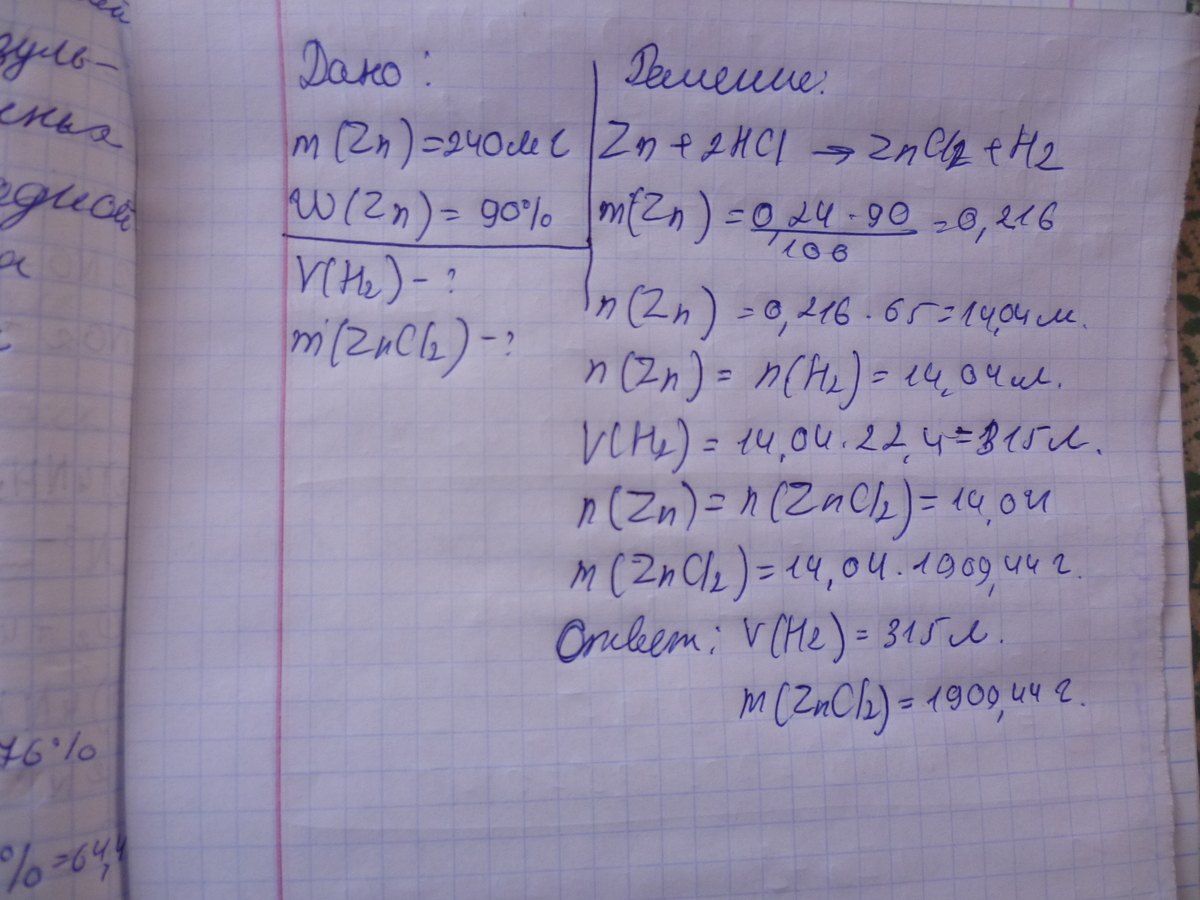 зуль-
адной
76%
% = 64,4
Дано:
m(Zn) = 240мг
W(Zn) = 90%
V(H2) - ?
m(ZnCl2) - ?
Решение:
Zn + 2HCl → ZnCl2 + H2
m(Zn) = 0,24 · 90 / 100 = 0,216
n(Zn) = 0,216 · 65 = 14,04м.
n(Zn) = n(H2) = 14,04м.
V(H2) = 14,04 · 22,4 = 315л.
n(Zn) = n(ZnCl2) = 14,04
m(ZnCl2) = 14,04 · 1909,44г.
Ответ: V(H2) = 315л.
m(ZnCl2) = 1909,44г.